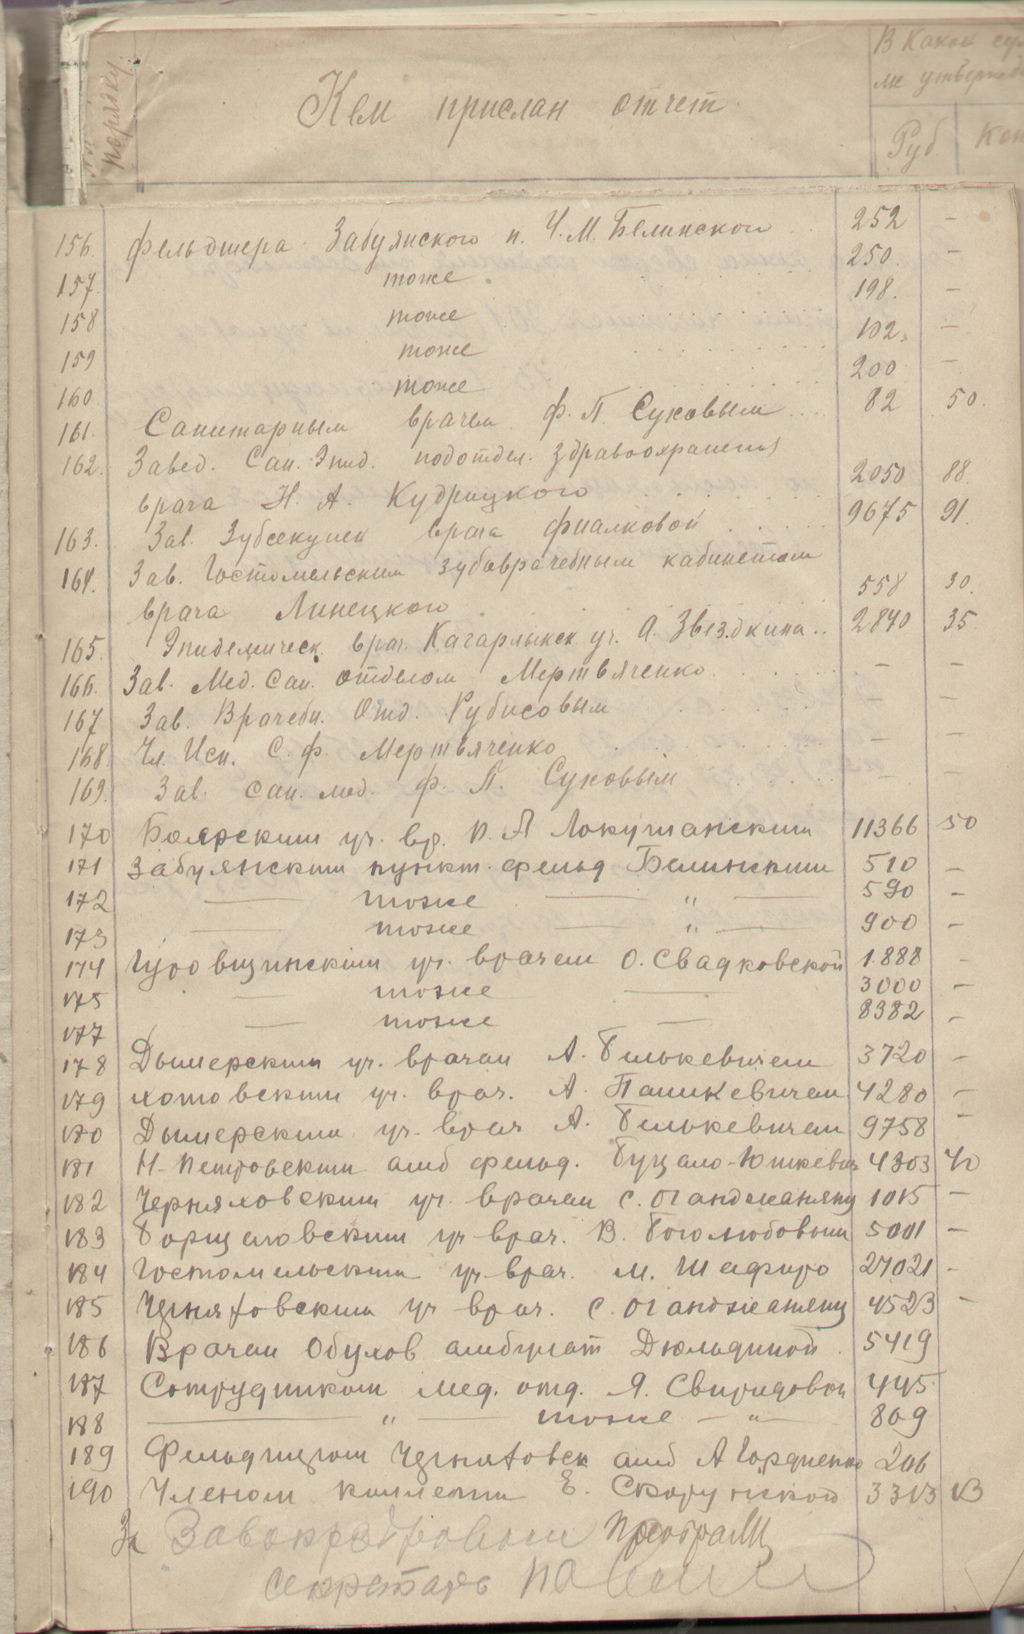 по порядку
Кем прислан отчет
В какой сум
ме утвержд
Руб Коп
156. фельдшера Забуянского п. Ч. М. Белинского 252 —
157. тоже 250. —
158 тоже 198. —
159 тоже 102. —
160 тоже 200 —
161. Санитарным врачем Ф. П. Суковым 82 50.
162. Завед. Сан. Эпид. подотдел. здравоохранения
врача Н. А. Кудрицкого 2050 88
163. Зав. Зубсекцией врача Фиалковой 9675 91.
164. Зав. Гостомельским зубоврачебным кабинетом
врача Линецкого 558 30.
165. Эпидемическ. врач. Кагарлыкск уч. А. Звездкина 2840 35.
166. Зав. Мед. Сан. отделом Мертвяченко — —
167 Зав. Врачебн. Отд. Рубисовым — —
168. Чл. Исп. С. Ф. Мертвяченко — —
169. Зав. сан. мед. Ф. П. Суковым — —
170 Боярским уч. вр. П. А Локушанским 11366 50
171 Забуянским пункт. фельд Белинским 510 —
172 — тоже — " — 590 —
173 — тоже — " — 900 —
174 Гуровщинским уч. врачем О. Свадковской 1888 —
175 — тоже — 3000 —
177 — тоже — 8382 —
178 Дымерским уч. врачам А. Билькевичем 3720 —
179 хотовским уч. врач. А. Пашкевичам 4280 —
180 Дымерским уч. врач А. Билькевичам 9758 —
181 Н-Петровским амб фельд. Буцало-Юшкевич 4303 40
182 Черняховским уч. врачам С. Оганджанянц 1015 —
183 Борщаговским уч врач. В. Боголюбовым 5001 —
184 Гостомельским уч. врач. М. Шафиро 27021 —
185 Черняховским уч врач. С. Оганджанянц 4523 —
186 Врачам Обухов амбулат Дюльдиной 5419
187 Сотрудником мед. отд. Я. Свиридовой 445
188 — " — тоже — " — 809
189 Фельдшером Черняховск амб А Гордиенко 206
190 Членом коллегии Е. Скорунской 3313 13
За
секретарь